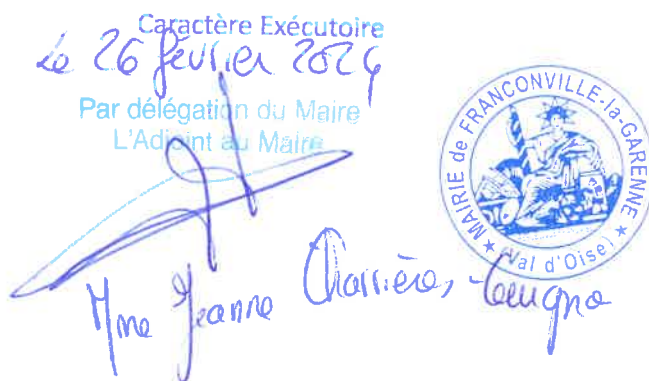 Caractère Exécutoire
Le 26 février 2024
Par délégation du Maire
L'Adjoint au Maire
MAIRIE de FRANCONVILLE-la-GARENNE
(Val d'Oise)
Mme Jeanne Charrières-